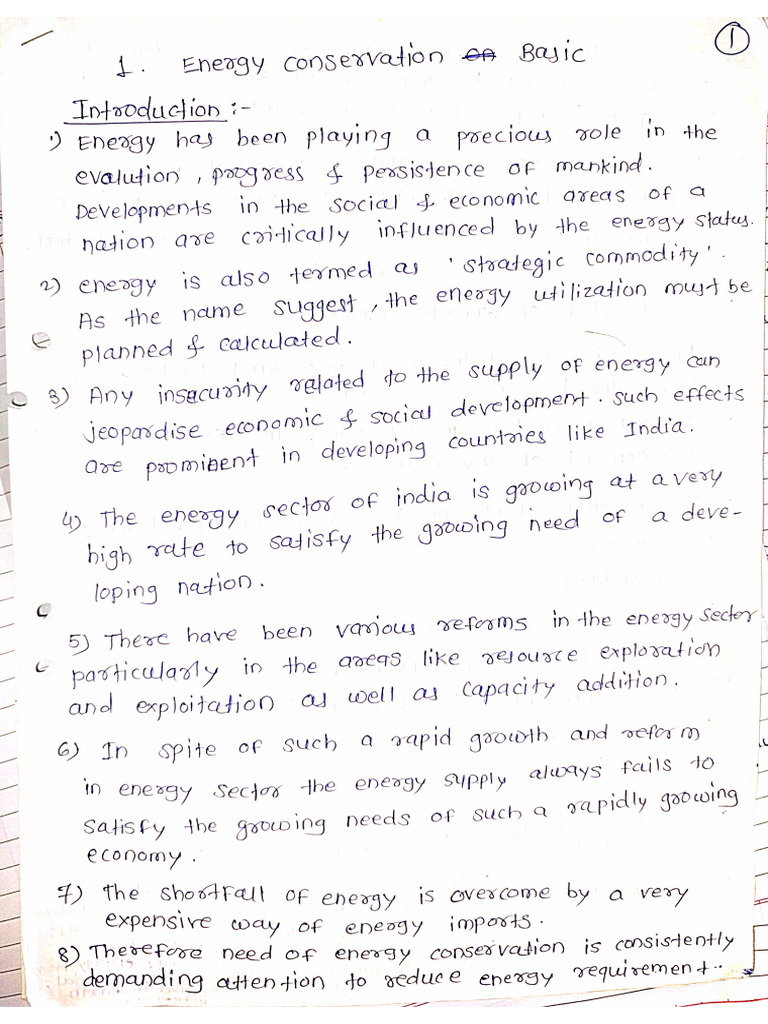 1
1. Energy conservation on Basic
Introduction :-
1) Energy has been playing a precious role in the
evalution, progress & persistence of mankind.
Developments in the social & economic areas of a
nation are critically influenced by the energy status.
2) energy is also termed as 'strategic commodity'.
As the name suggest, the energy utilization must be
planned & calculated.
3) Any insecurity related to the supply of energy can
jeopardise economic & social development. such effects
are prominent in developing countries like India.
4) The energy sector of india is growing at a very
high rate to satisfy the growing need of a deve-
loping nation.
5) There have been various reforms in the energy sector.
particularly in the areas like resource exploration
and exploitation as well as capacity addition.
6) In spite of such a rapid growth and reform
in energy sector the energy supply always fails to
satisfy the growing needs of such a rapidly growing
economy.
7) The shortfall of energy is overcome by a very
expensive way of energy imports.
8) Therefore need of energy conservation is consistently
demanding attention to reduce energy requirement..